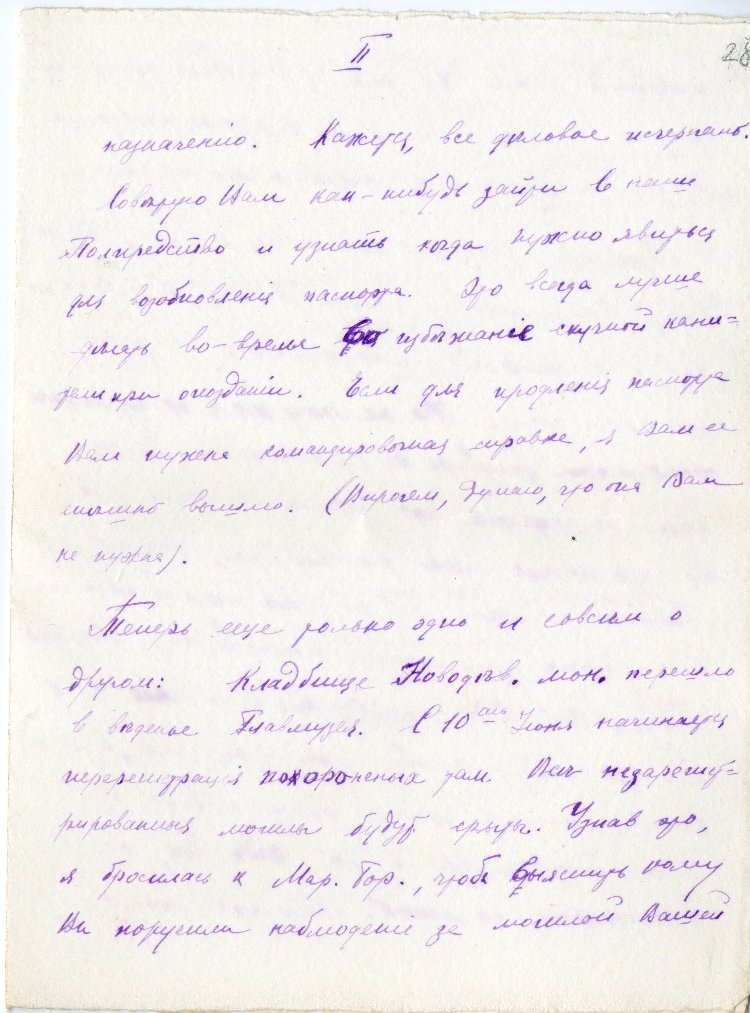 II
28
назначенію. Кажется, все дѣловое исчерпано.
Совѣтую Вам как-нибудь зайти в наше
Полпредство и узнать когда нужно явиться
для возобновленія паспорта. Это всегда лучше
дѣлать во-время во избѣжаніе скучной кани-
тели при опозданіи. Если для продленія паспорта
Вам нужна командировочная справка, я Вам ее
мигом вышлю. (Впрочем, думаю, что она Вам
не нужна).
Теперь еще только одно и совсѣм о
другом: Кладбище Новодѣв. мон. перешло
в вѣденье Главмузея. С 10аго Іюня начинается
перерегистрація похороненых там. Всѣ незарегист-
рированныя могилы будут срыты. Узнав это,
я бросилась к Мар. Гор., чтоб выяснить кому
Вы поручили наблюденіе за могилой Вашей